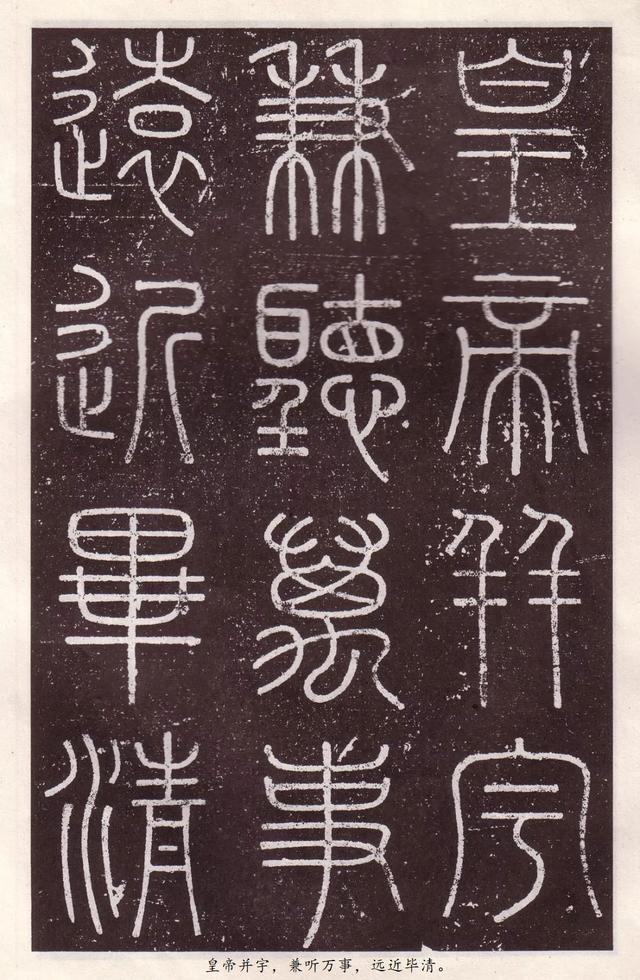 皇帝并宇
兼聽萬事
遠近畢清
皇帝并宇，兼听万事，远近毕清。